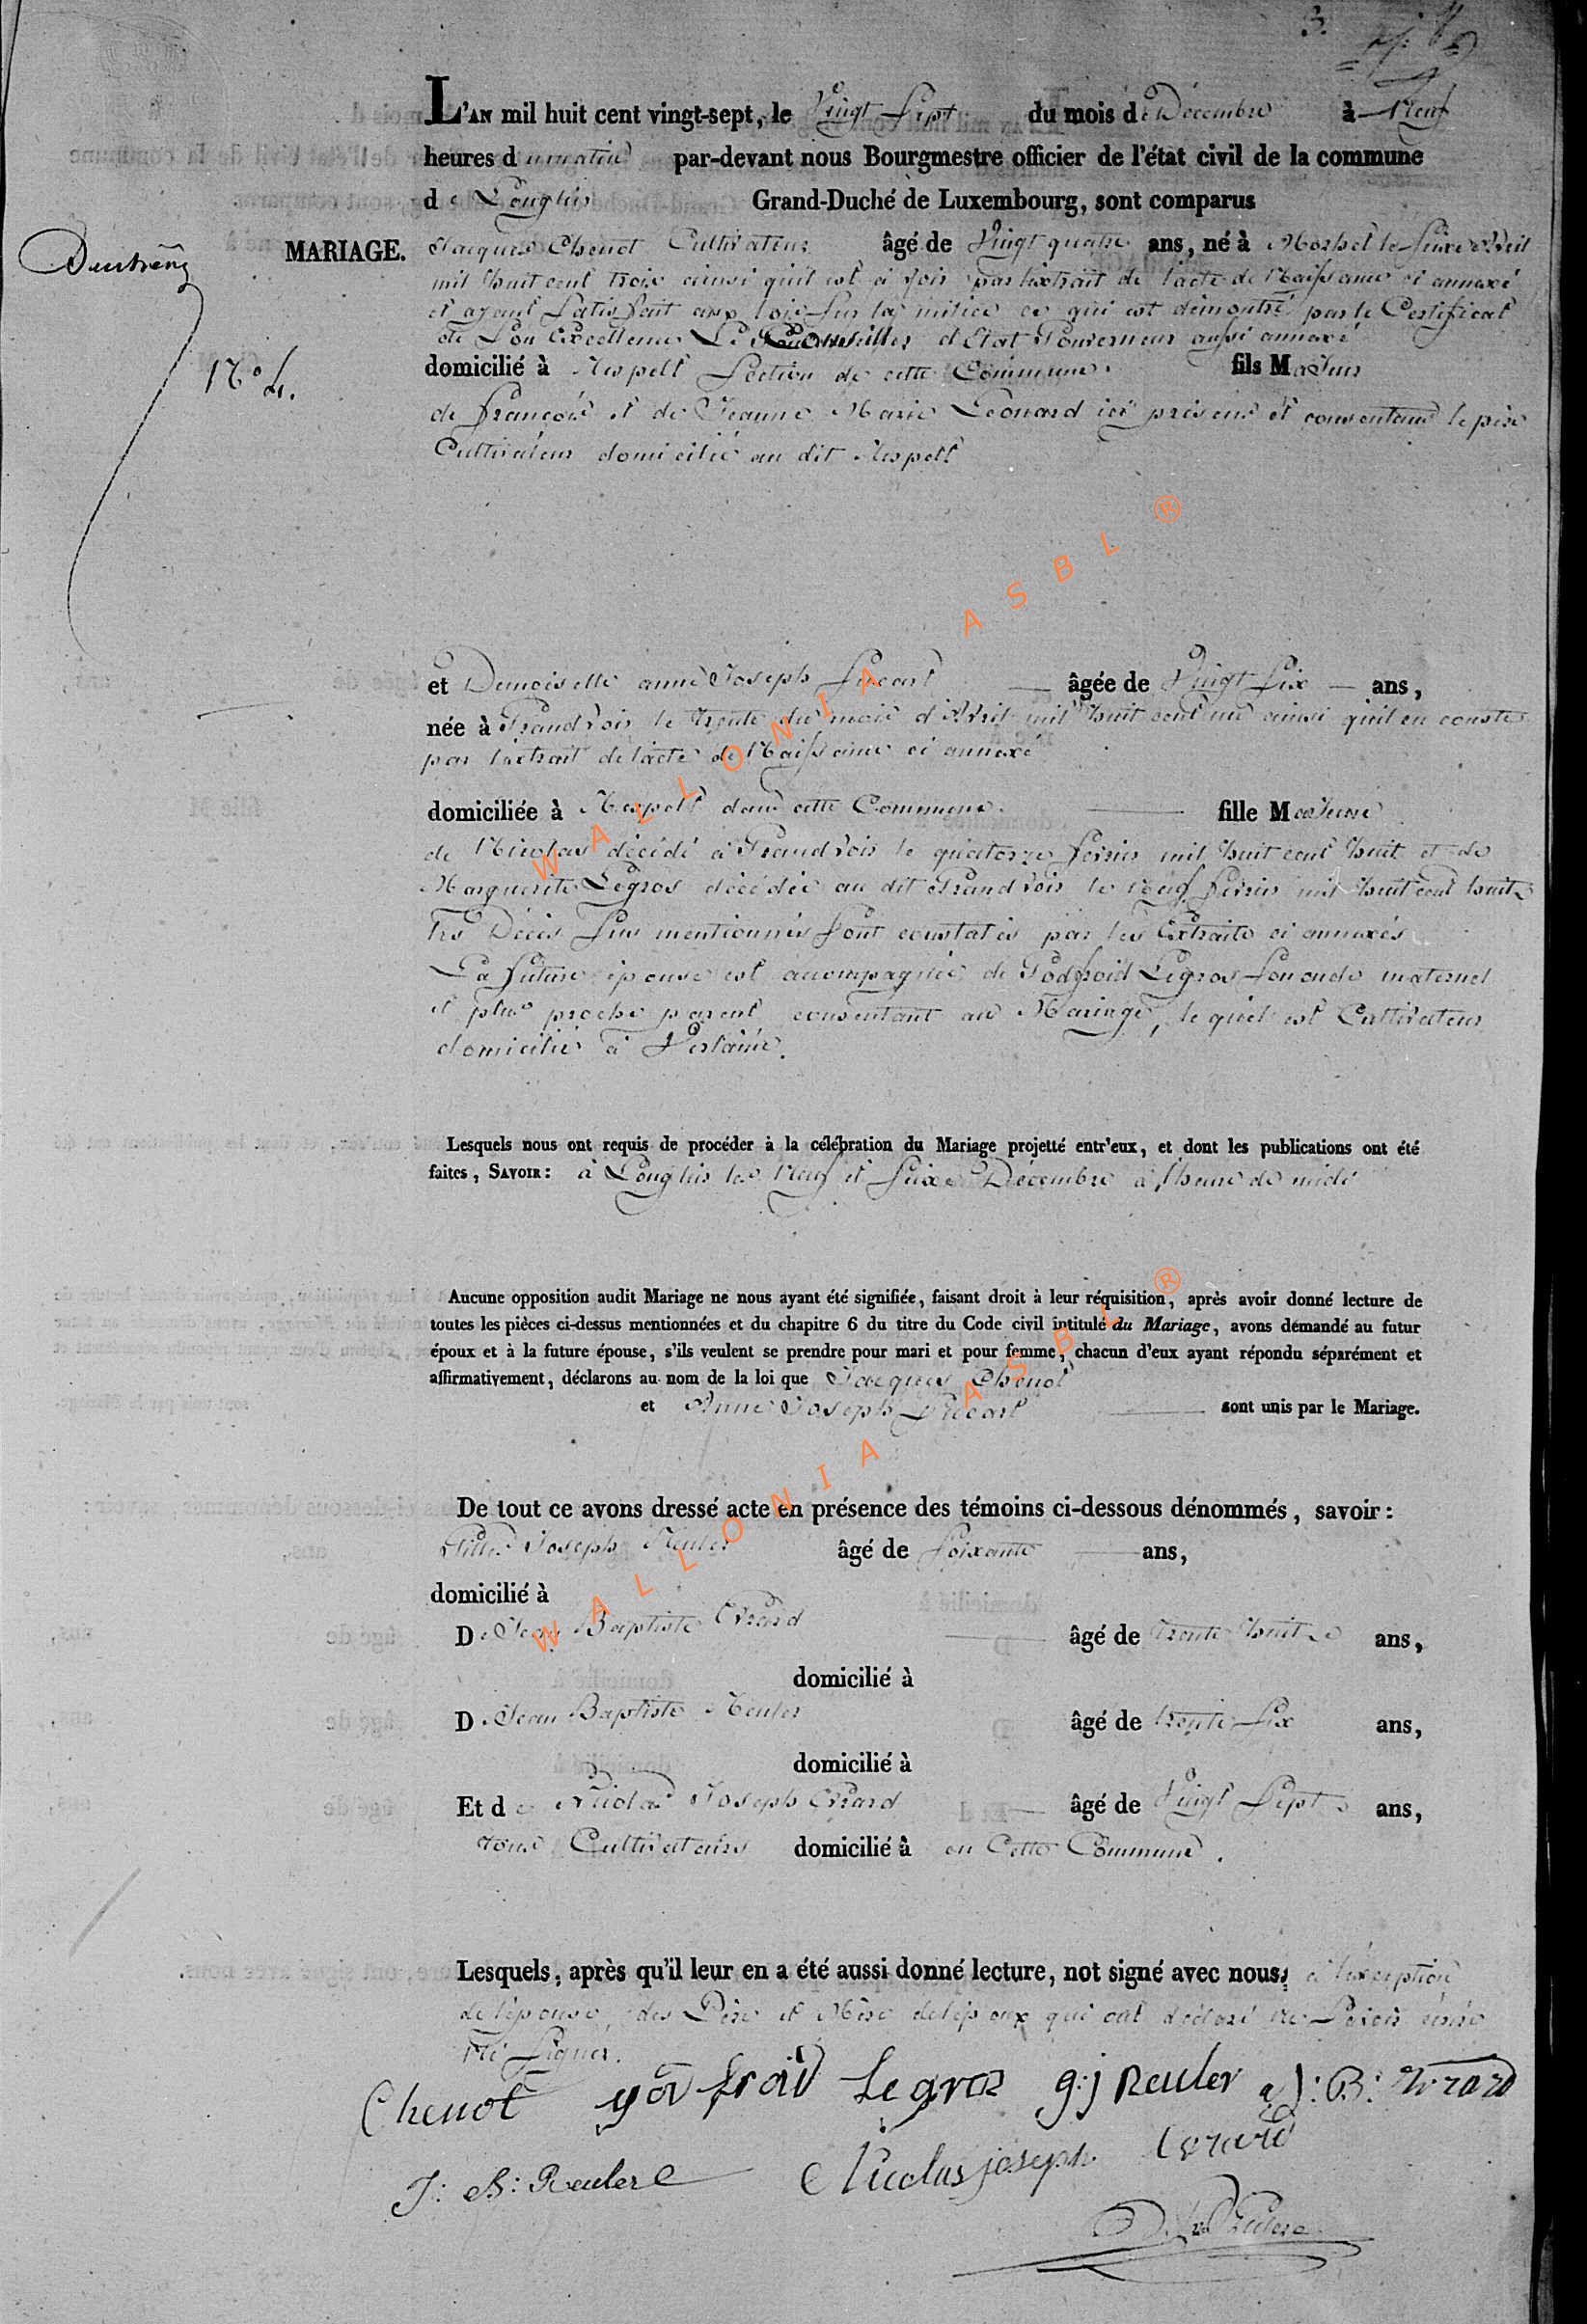 3.
L'AN mil huit cent vingt-sept, le Vingt Sept du mois de Décembre à Neuf
heures du matin par-devant nous Bourgmestre officier de l'état civil de la commune
de Longlier Grand-Duché de Luxembourg, sont comparus
MARIAGE. Jacques Chenot Cultivateur âgé de Vingt quatre ans, né à le Seize Avril
mil huit cent trois ainsi qu'il est à voir par l'extrait de l'acte de Naissance ci annexé
et ayant Satisfait aux loix Sur la milice ce qui est démontré par le Certificat
de Son Excellence Le Conseiller d'Etat Gouverneur aussi annexé
N° 4.
domicilié à Respelt Section de cette Commune. fils Majeur
de françois et de Jeanne Marie Léonard ici présens et consentans le père
Cultivateur domicilié au dit Respelt
et Demoiselle anne Joseph âgée de Vingt Six ans,
née à Grandvoir le trente du mois d'Avril mil huit cent un ainsi qu'il en conste
par l'extrait de l'acte de Naissance ci annexé
domiciliée à Respelt dans cette Commune. fille Majeure
de Nicolas décédé à Grandvoir le quatorze fevrier mil huit cent huit et de
Marguerite Legros décédée au dit Grandvoir le neuf fevrier mil huit cent huit
Les Décès Sus mentionnés Sont constatés par les Extraits ci annexés
La future épouse est accompagnée de Godfroid Legros Son oncle maternel
et plus proche parent consentant au Mariage, le quel est Cultivateur
domicilié à Verlaine.
Lesquels nous ont requis de procéder à la célébration du Mariage projetté entr'eux, et dont les publications ont été
faites, SAVOIR: à Longlier les Neuf et Seize Décembre à l'heure de midi
Aucune opposition audit Mariage ne nous ayant été signifiée, faisant droit à leur réquisition, après avoir donné lecture de
toutes les pièces ci-dessus mentionnées et du chapitre 6 du titre du Code civil intitulé du Mariage, avons demandé au futur
époux et à la future épouse, s'ils veulent se prendre pour mari et pour femme, chacun d'eux ayant répondu séparément et
affirmativement, déclarons au nom de la loi que Jacques Chenot
et Anne Joseph sont unis par le Mariage.
De tout ce avons dressé acte en présence des témoins ci-dessous dénommés, savoir:
Joseph Reuler âgé de Soixante ans,
domicilié à
De Jean Baptiste Evrard âgé de trente huit ans,
domicilié à
De Jean Baptiste Reuler âgé de trente Six ans,
domicilié à
Et de Nicolas Joseph Evrard âgé de Vingt Sept ans,
tous Cultivateurs domicilié à en Cette Commune.
Lesquels, après qu'il leur en a été aussi donné lecture, ont signé avec nous, à l'exception
de l'épouse, des Père et Mère de l'époux qui ont déclaré ne Savoir écrire
ni Signer.
Chenot godfroid Legros g:j Reuler J:B: Evrard
J: B: Reuler Nicolas joseph Evrard
WALLONIA ASBL ®
WALLONIA ASBL ®